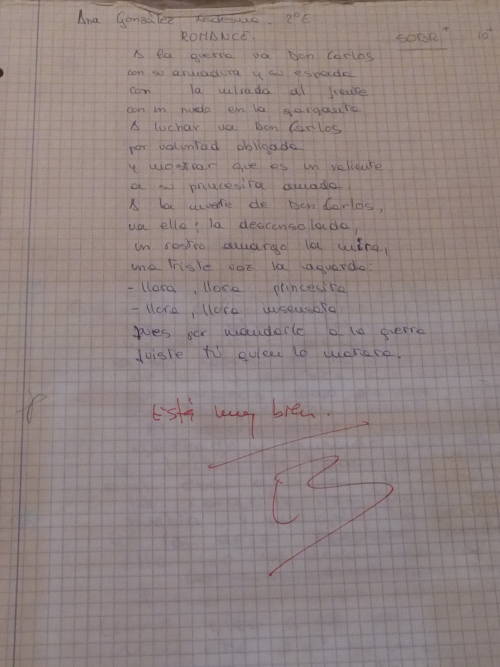 Ana González Ledesma. 2º E
ROMANCE. SOBR+ 10+
A la guerra va Don Carlos
con su armadura y su espada
con la mirada al frente
con un nudo en la garganta
A luchar va Don Carlos
por voluntad obligada
y mostrar que es un valiente
a su princesita amada
A la muerte de Don Carlos,
va ella; la desconsolada,
un rostro amargo la mira,
una triste voz la aguarda:
- llora, llora princesita
- llora, llora insensata
pues por mandarle a la guerra
fuiste tú quien lo matara.
Está muy bien.